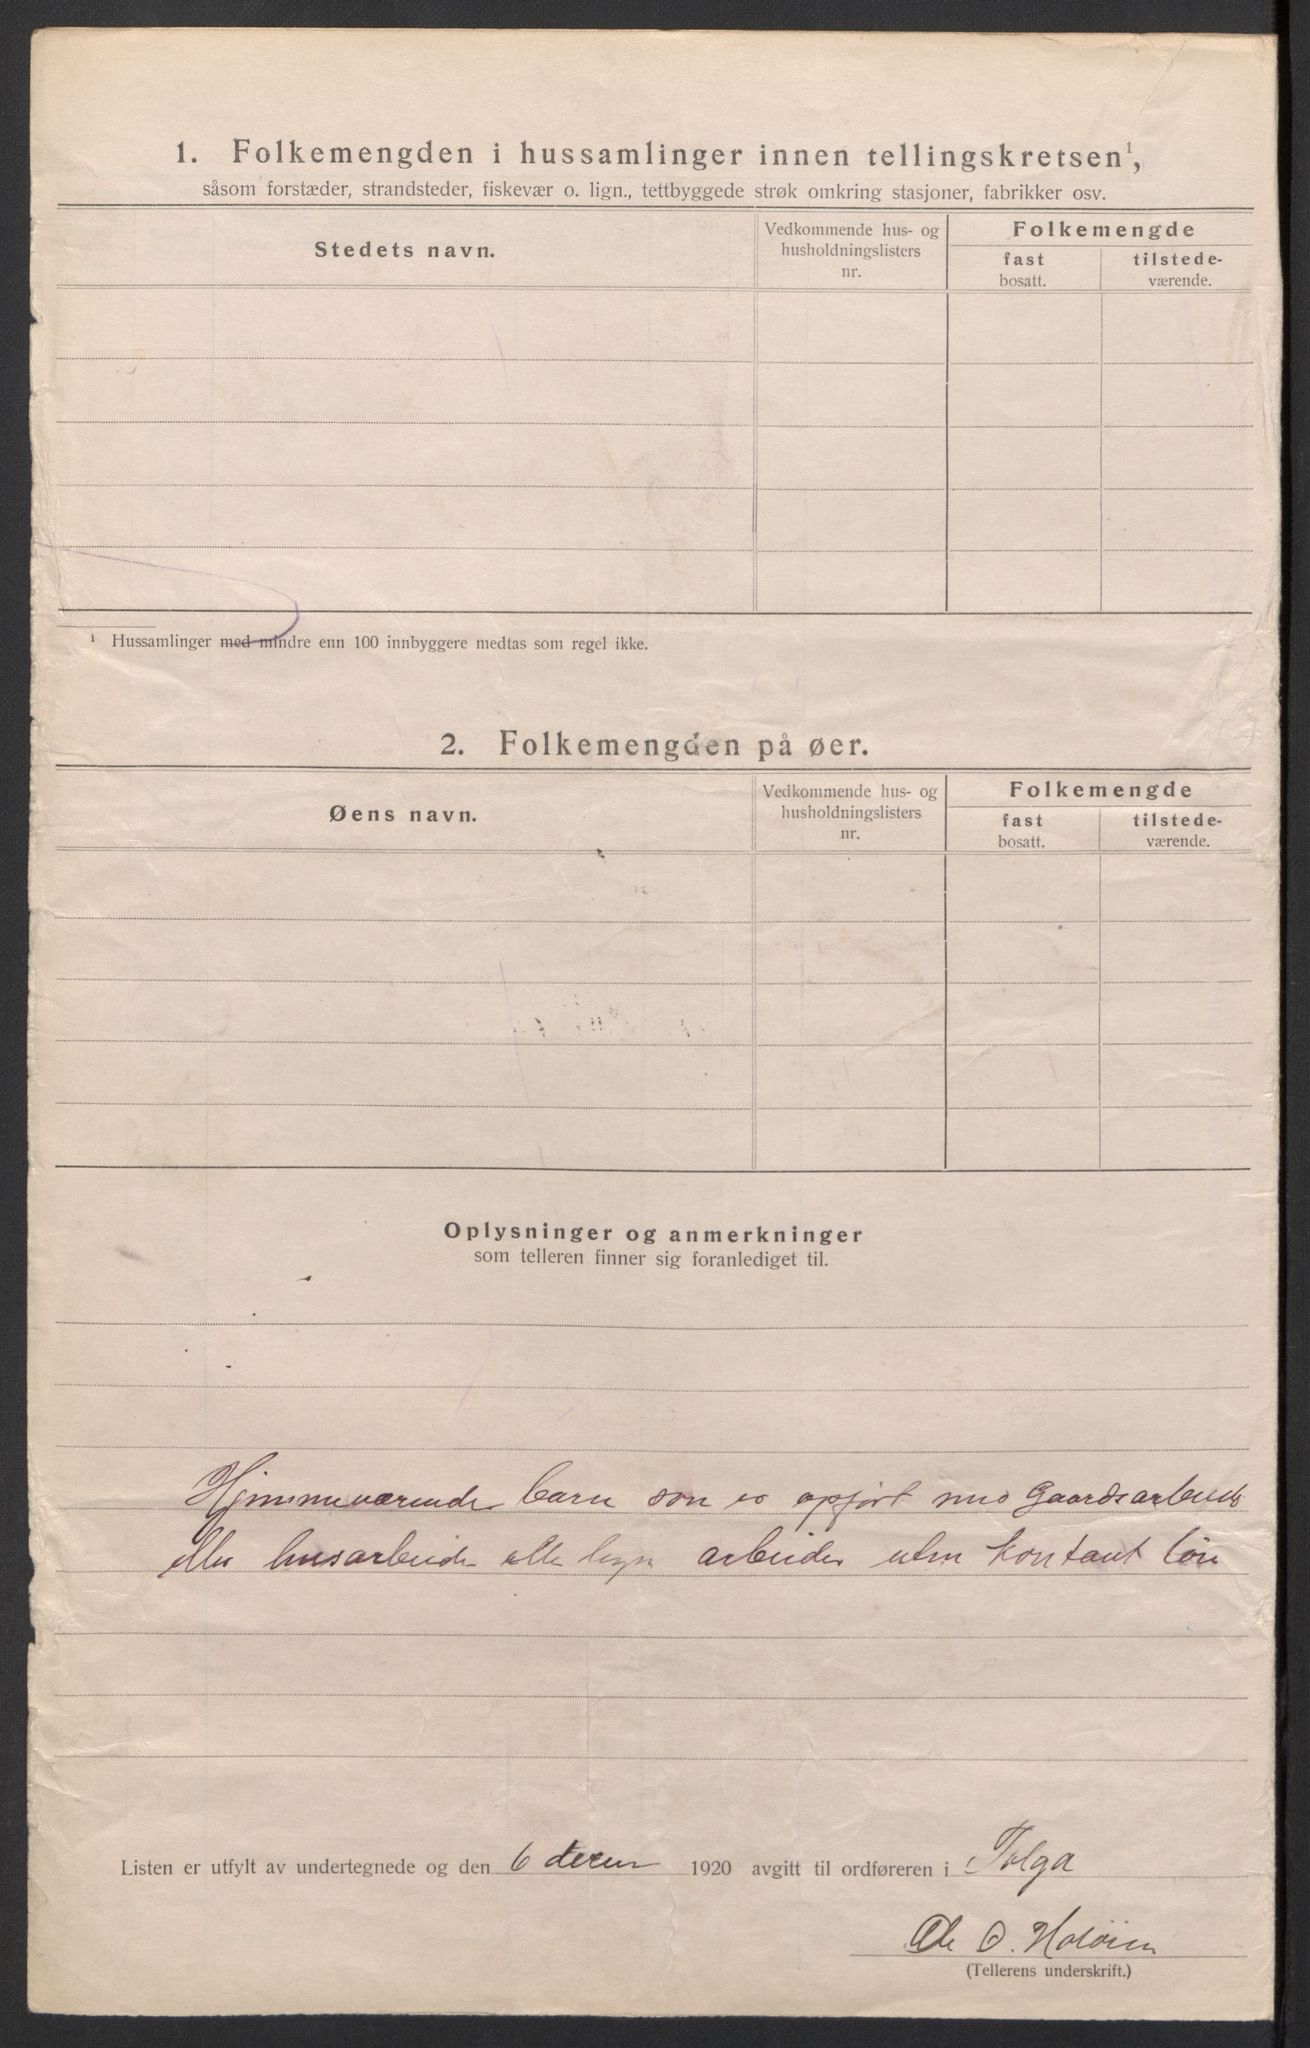 1. Folkemengden i hussamlinger innen tellingskretsen¹,
såsom forstæder, strandsteder, fiskevær o. lign., tettbyggede strøk omkring stasjoner, fabrikker osv.
Stedets navn.
Vedkommende hus- og
husholdningslisters
nr.
Folkemengde
fast
bosatt.
tilstede-
værende.
¹ Hussamlinger med mindre enn 100 innbyggere medtas som regel ikke.
2. Folkemengden på øer.
Øens navn.
Vedkommende hus- og
husholdningslisters
nr.
Folkemengde
fast
bosatt.
tilstede-
værende.
Oplysninger og anmerkninger
som telleren finner sig foranlediget til.
Hjemmeværende barn som er opført med Gaardsarbeide
eller husarbeide eller lign arbeider uten kontant løn
Listen er utfylt av undertegnede og den 6 decem 1920 avgitt til ordføreren i Tolga
Ole O. Holøien
(Tellerens underskrift.)